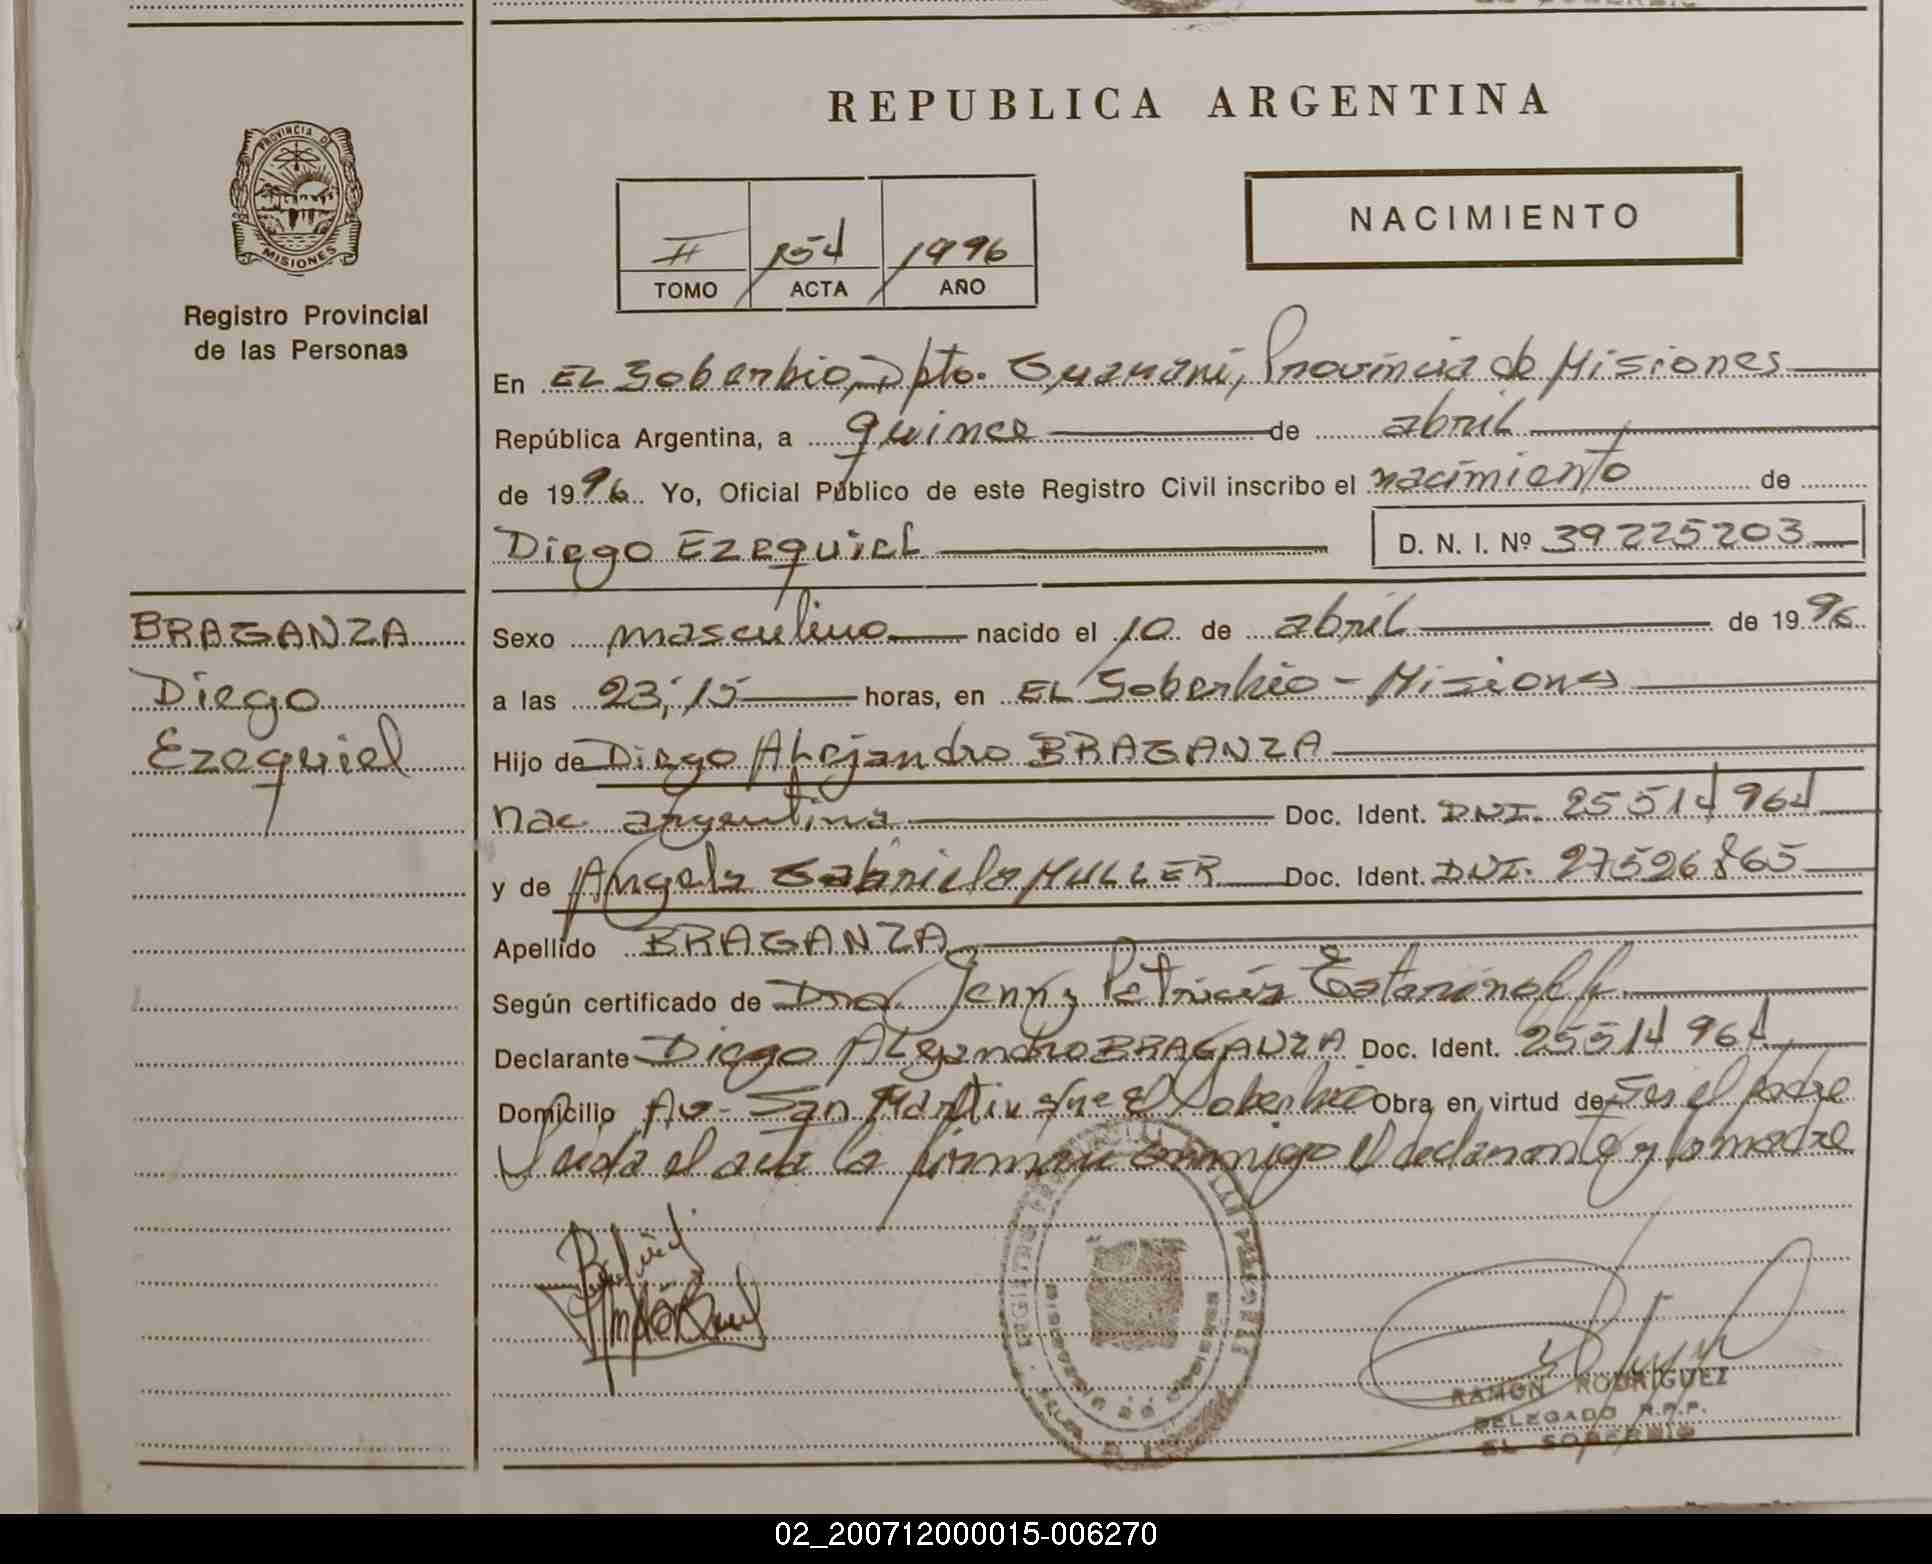 REPUBLICA ARGENTINA
PROVINCIA DE
MISIONES
Registro Provincial
de las Personas
II 154 1996
TOMO ACTA AÑO
NACIMIENTO
En EL Soberbio, Dpto. Guaraní, Provincia de Misiones
República Argentina, a quince de abril
de 1996. Yo, Oficial Público de este Registro Civil inscribo el nacimiento de
Diego EZEQUIEL D. N. I. Nº 39225203
BRAGANZA
Diego
Ezequiel
Sexo masculino nacido el 10 de abril de 1996
a las 23;15 horas, en EL Soberbio - Misiones
Hijo de Diego ALejandro BRAGANZA
nac. argentina Doc. Ident. DNI. 25514964
y de Angela Gabriela MULLER Doc. Ident. DNI. 27526865
Apellido BRAGANZA
Según certificado de Dra. Jenny Patricia
Declarante Diego ALejandro BRAGANZA Doc. Ident. 25514964
Domicilio Av. San Martin El Soberbio Obra en virtud de Ser el padre
Leida el acta la firman conmigo el declarante y la madre
RAMON RODRIGUEZ
DELEGADO R.P.P.
EL SOBERBIO
02_200712000015-006270